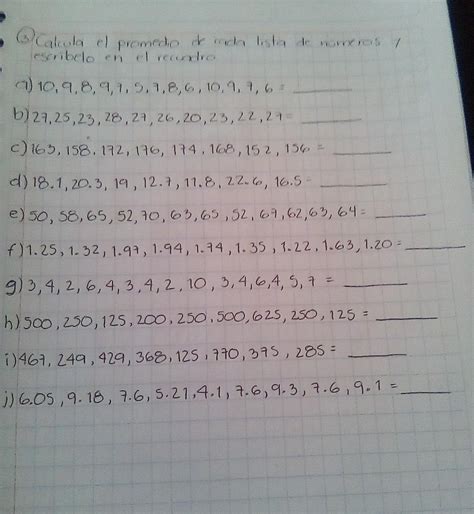 ③ Calcula el promedio de cada lista de números y
escribelo en el recuadro
a) 10, 9, 8, 9, 7, 5, 7, 8, 6, 10, 9, 7, 6 = ______
b) 27, 25, 23, 28, 27, 26, 20, 23, 22, 27 = ______
c) 163, 158, 172, 176, 174, 168, 152, 156 = ______
d) 18.1, 20.3, 19, 12.7, 11.8, 22.6, 16.5 = ______
e) 50, 58, 65, 52, 70, 63, 65, 52, 67, 62, 63, 64 = ______
f) 1.25, 1.32, 1.97, 1.94, 1.74, 1.35, 1.22, 1.63, 1.20 = ______
g) 3, 4, 2, 6, 4, 3, 4, 2, 10, 3, 4, 6, 4, 5, 7 = ______
h) 500, 250, 125, 200, 250, 500, 625, 250, 125 = ______
i) 467, 249, 429, 368, 125, 770, 375, 285 = ______
j) 6.05, 9.18, 7.6, 5.21, 4.1, 7.6, 9.3, 7.6, 9.1 = ______